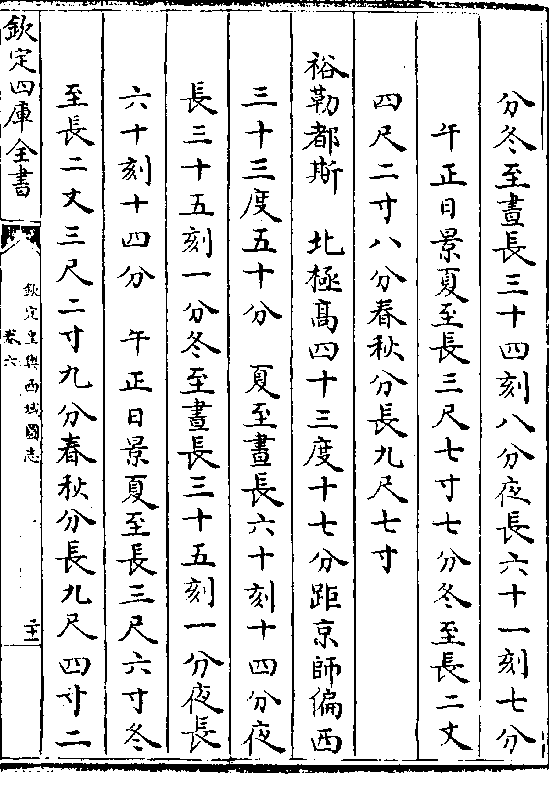 分冬至晝長三十四刻八分夜長六十一刻七分
午正日景夏至長三尺七寸七分冬至長二丈
四尺二寸八分春秋分長九尺七寸
裕勒都斯　北極髙四十三度十七分距京師偏西
三十三度五十分　夏至晝長六十刻十四分夜
長三十五刻一分冬至晝長三十五刻一分夜長
六十刻十四分　午正日景夏至長三尺六寸冬
至長二丈三尺二寸九分春秋分長九尺四寸二
欽定四庫全書
欽定皇輿西域圖志
卷六
二十一